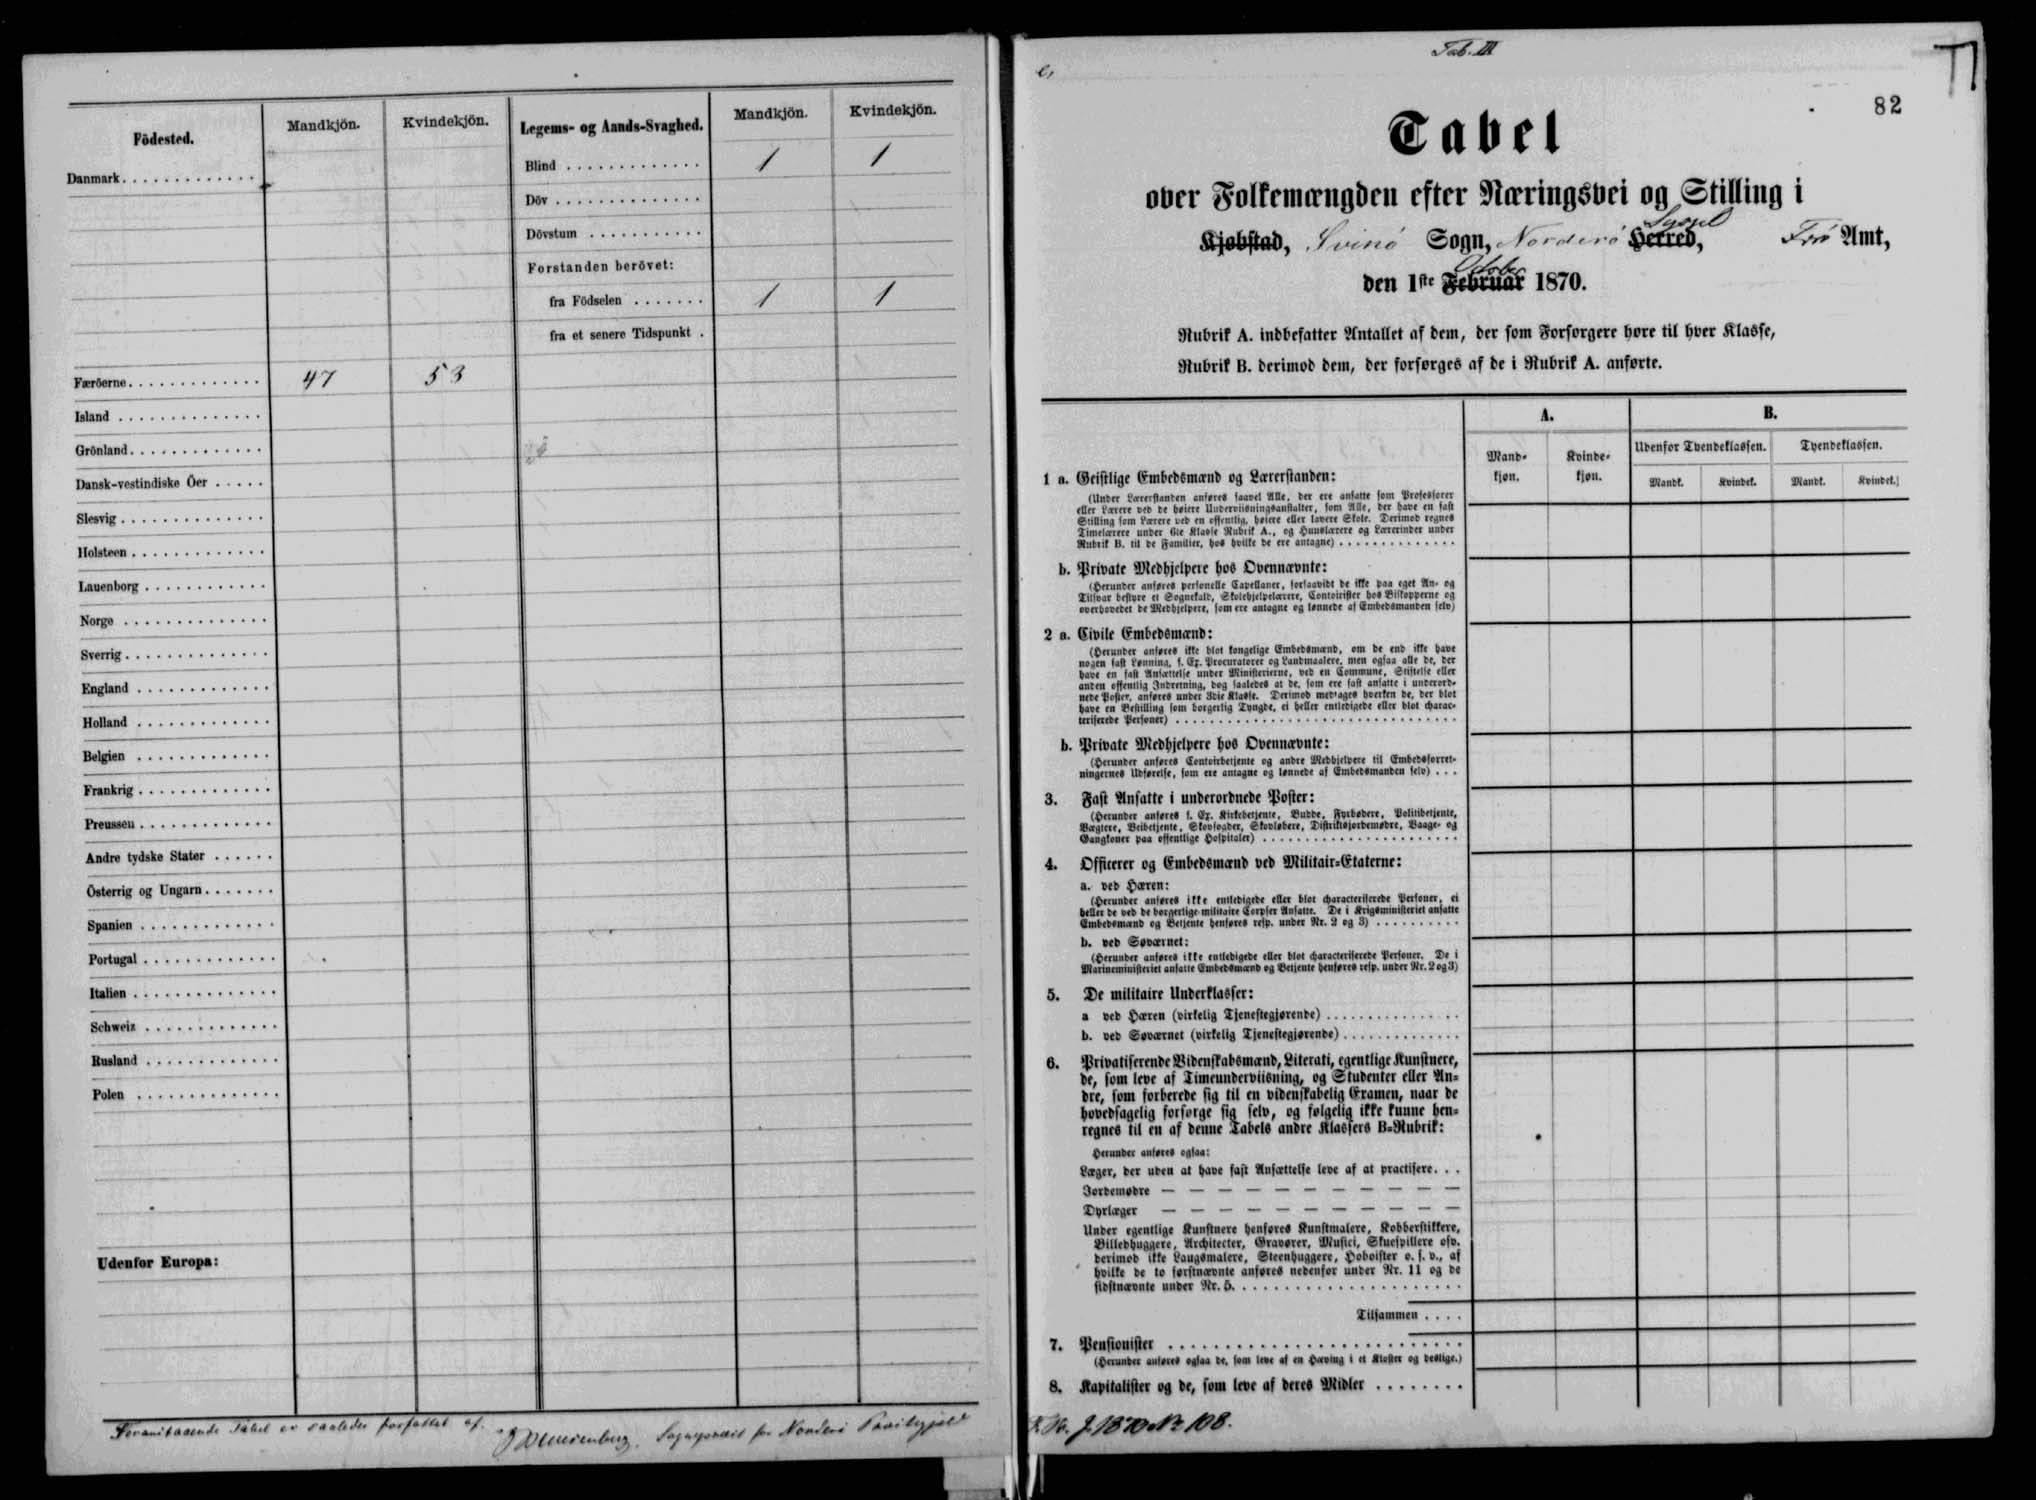 Födested. Mandkjön. Kvindekjön. Legems- og Aands-Svaghed. Mandkjön. Kvindekjön.
Danmark
Blind 1 1
Döv
Dövstum
Forstanden berövet:
fra Födselen 1 1
fra et senere Tidspunkt
Færöerne 47 53
Island
Grönland
Dansk-vestindiske Öer
Slesvig
Holsteen
Lauenborg
Norge
Sverrig
England
Holland
Belgien
Frankrig
Preussen
Andre tydske Stater
Österrig og Ungarn
Spanien
Portugal
Italien
Schweiz
Rusland
Polen
Udenfor Europa:
Foranstaaende Tabel er saaledes forfattet af.
Sognepræst for Norderø Præstegjeld
Tab. III
82
Tabel
over Folkemængden efter Næringsvei og Stilling i
Kjøbstad, Svinø Sogn, Norderø Herred, Syssel Frø Amt,
den 1ste Februar October 1870.
Rubrik A. indbefatter Antallet af dem, der som Forsørgere høre til hver Klasse,
Rubrik B. derimod dem, der forsørges af de i Rubrik A. anførte.
A. B.
Mandkjøn. Kvindekjøn. Udenfor Tyendeklassen. Tyendeklassen.
Mandk. Kvindek. Mandk. Kvindek.
1 a. Geistlige Embedsmænd og Lærerstanden:
(Under Lærerstanden anføres saavel Alle, der ere ansatte som Professorer
eller Lærere ved de høiere Underviisningsanstalter, som Alle, der have en fast
Stilling som Lærere ved en offentlig, høiere eller lavere Skole. Derimod regnes
Timelærere under 6te Klasse Rubrik A., og Huuslærere og Lærerinder under
Rubrik B. til de Familier, hos hvilke de ere antagne)
b. Private Medhjelpere hos Ovennævnte:
(Herunder anføres personelle Capellaner, forsaavidt de ikke paa eget An- og
Tilsvar bestyre et Sognekald, Skolehjelpelærere, Contoirister hos Biskopperne og
overhovedet de Medhjelpere, som ere antagne og lønnede af Embedsmanden selv)
2 a. Civile Embedsmænd:
(Herunder anføres ikke blot kongelige Embedsmænd, om de end ikke have
nogen fast Lønning, f. Ex. Procuratorer og Landmaalere, men ogsaa alle de, der
have en fast Ansættelse under Ministerierne, ved en Commune, Stiftelse eller
anden offentlig Indretning, dog saaledes at de, som ere fast ansatte i underord-
nede Poster, anføres under 3die Klasse. Derimod medtages hverken de, der blot
have en Bestilling som borgerlig Tyngde, ei heller entledigede eller blot charac-
teriserede Personer)
b. Private Medhjelpere hos Ovennævnte:
(Herunder anføres Contoirbetjente og andre Medhjelpere til Embedsforret-
ningernes Udførelse, som ere antagne og lønnede af Embedsmanden selv)
3. Fast Ansatte i underordnede Poster:
(Herunder anføres f. Ex. Kirkebetjente, Budde, Fyrbødere, Politibetjente,
Vægtere, Veibetjente, Skovfogder, Skovløbere, Distriktsjordemødre, Vaage- og
Gangkoner paa offentlige Hospitaler)
4. Officerer og Embedsmænd ved Militair-Etaterne:
a. ved Hæren:
(Herunder anføres ikke entledigede eller blot characteriserede Personer, ei
heller de ved de borgerlige militaire Corpser Ansatte. De i Krigsministeriet ansatte
Embedsmænd og Betjente henføres resp. under Nr. 2 og 3)
b. ved Søværnet:
(Herunder anføres ikke entledigede eller blot characteriserede Personer. De i
Marineministeriet ansatte Embedsmænd og Betjente henføres resp. under Nr. 2 og 3)
5. De militaire Underklasser:
a ved Hæren (virkelig Tjenestegjørende)
b. ved Søværnet (virkelig Tjenestegjørende)
6. Privatiserende Videnskabsmænd, Literati, egentlige Kunstnere,
de, som leve af Timeunderviisning, og Studenter eller An-
dre, som forberede sig til en videnskabelig Examen, naar de
hovedsagelig forsørge sig selv, og følgelig ikke kunne hen-
regnes til en af denne Tabels andre Klassers B-Rubrik:
Herunder anføres ogsaa:
Læger, der uden at have fast Ansættelse leve af at practisere
Jordemødre — — — — — — — — — — —
Dyrlæger — — — — — — — — — — —
Under egentlige Kunstnere henføres Kunstmalere, Kobberstikkere,
Billedhuggere, Architecter, Gravører, Musici, Skuespillere osv.
derimod ikke Laugsmalere, Steenhuggere, Hoboister o. s. v., af
hvilke de to førstnævnte anføres nedenfor under Nr. 11 og de
sidstnævnte under Nr. 5.
Tilsammen
7. Pensionister
(Herunder anføres ogsaa de, som leve af en Hæving i et Kloster og deslige.)
8. Kapitalister og de, som leve af deres Midler
J. 1870 Nr. 108.